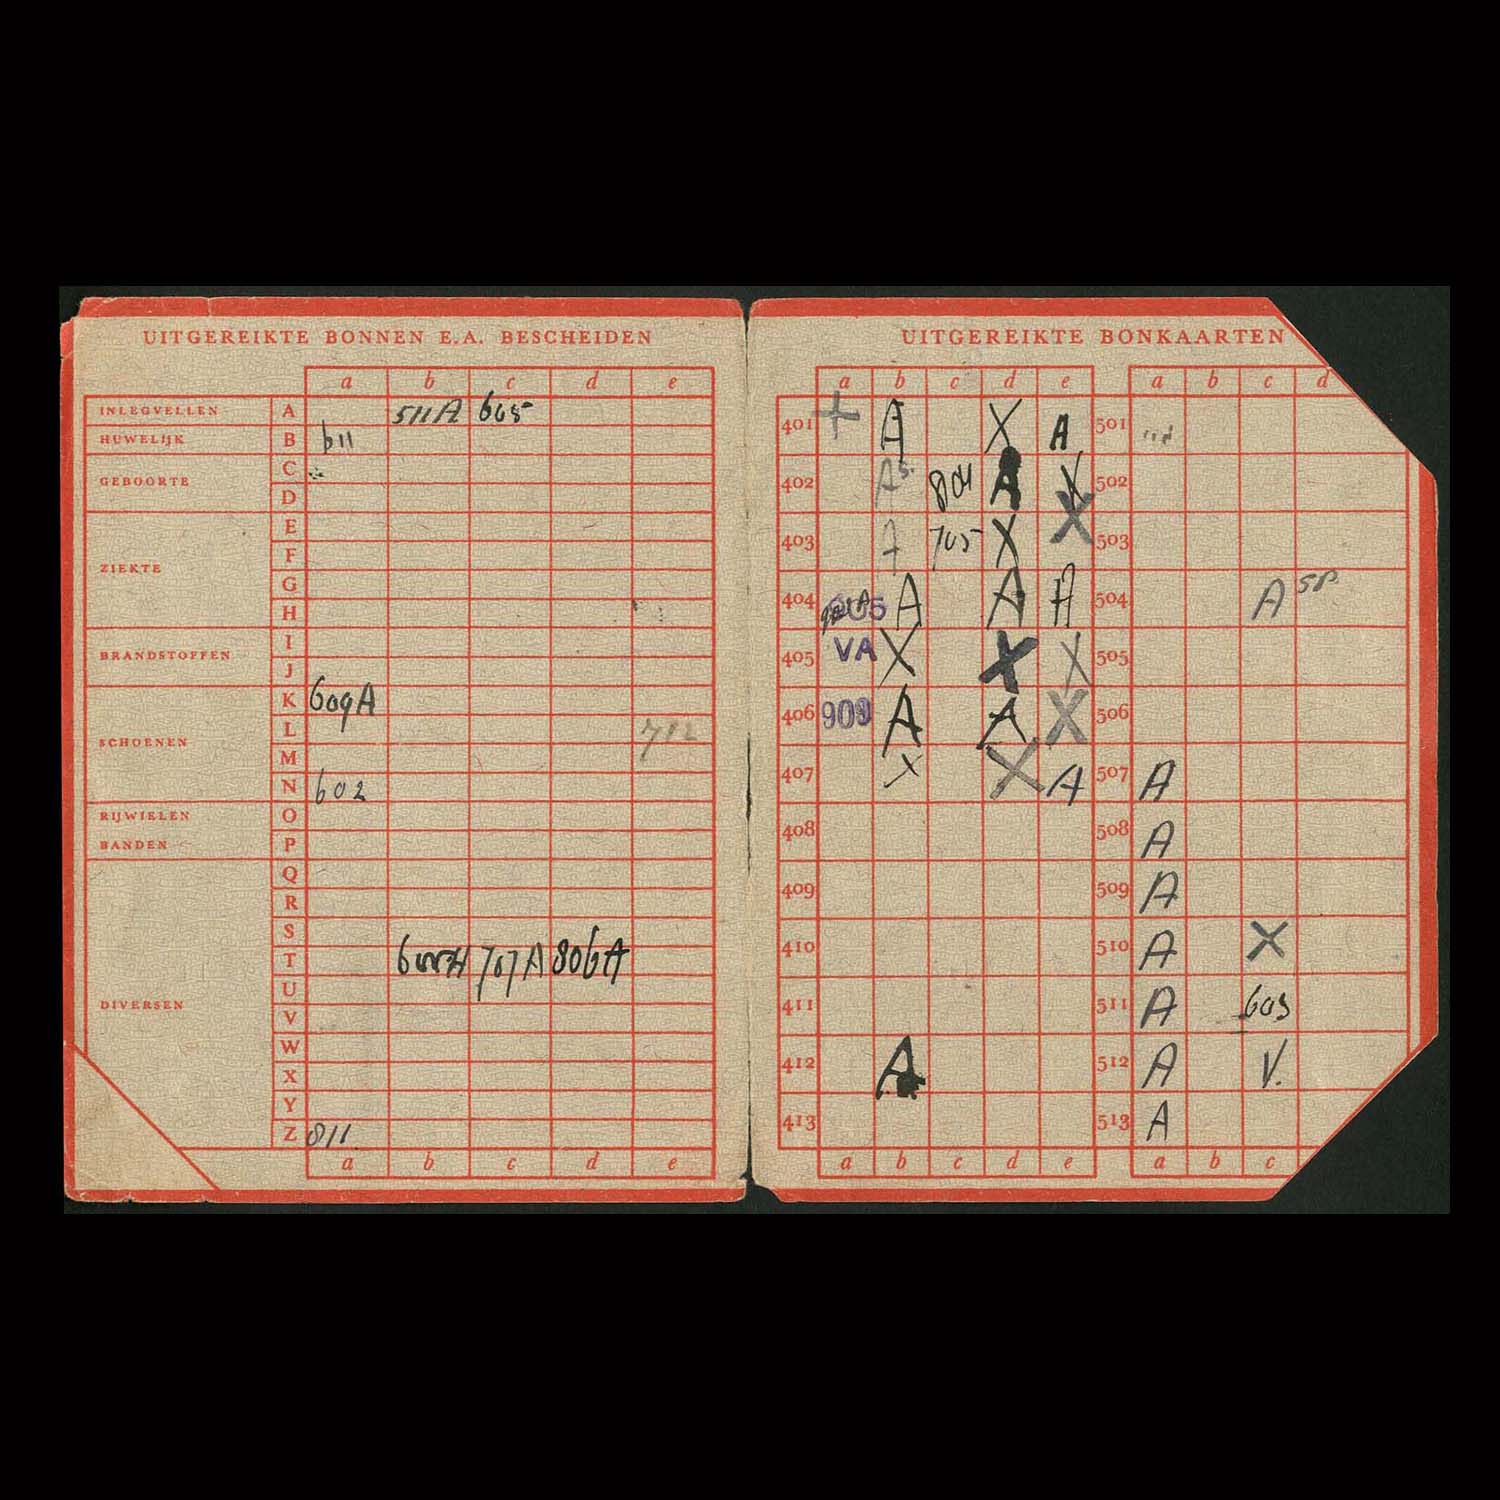 UITGEREIKTE BONNEN E.A. BESCHEIDEN
a b c d e
INLEGVELLEN A 511A 605
HUWELIJK B 611
GEBOORTE C
D
ZIEKTE E
F
G
H
BRANDSTOFFEN I
J
SCHOENEN K 609A
L 712
M
N 602
RIJWIELEN O
BANDEN P
DIVERSEN Q
R
S
T 707A 806A
U
V
W
X
Y
Z 811
a b c d e
UITGEREIKTE BONKAARTEN
a b c d e a b c d
401 + A X A 501
402 804 A X 502
403 A 705 X X 503
404 A A A 504 A
405 VA X X X 505
406 909 A A X 506
407 X X A 507 A
408 508 A
409 509 A
410 510 A X
411 511 A 603
412 A 512 A V.
413 513 A
a b c d e a b c